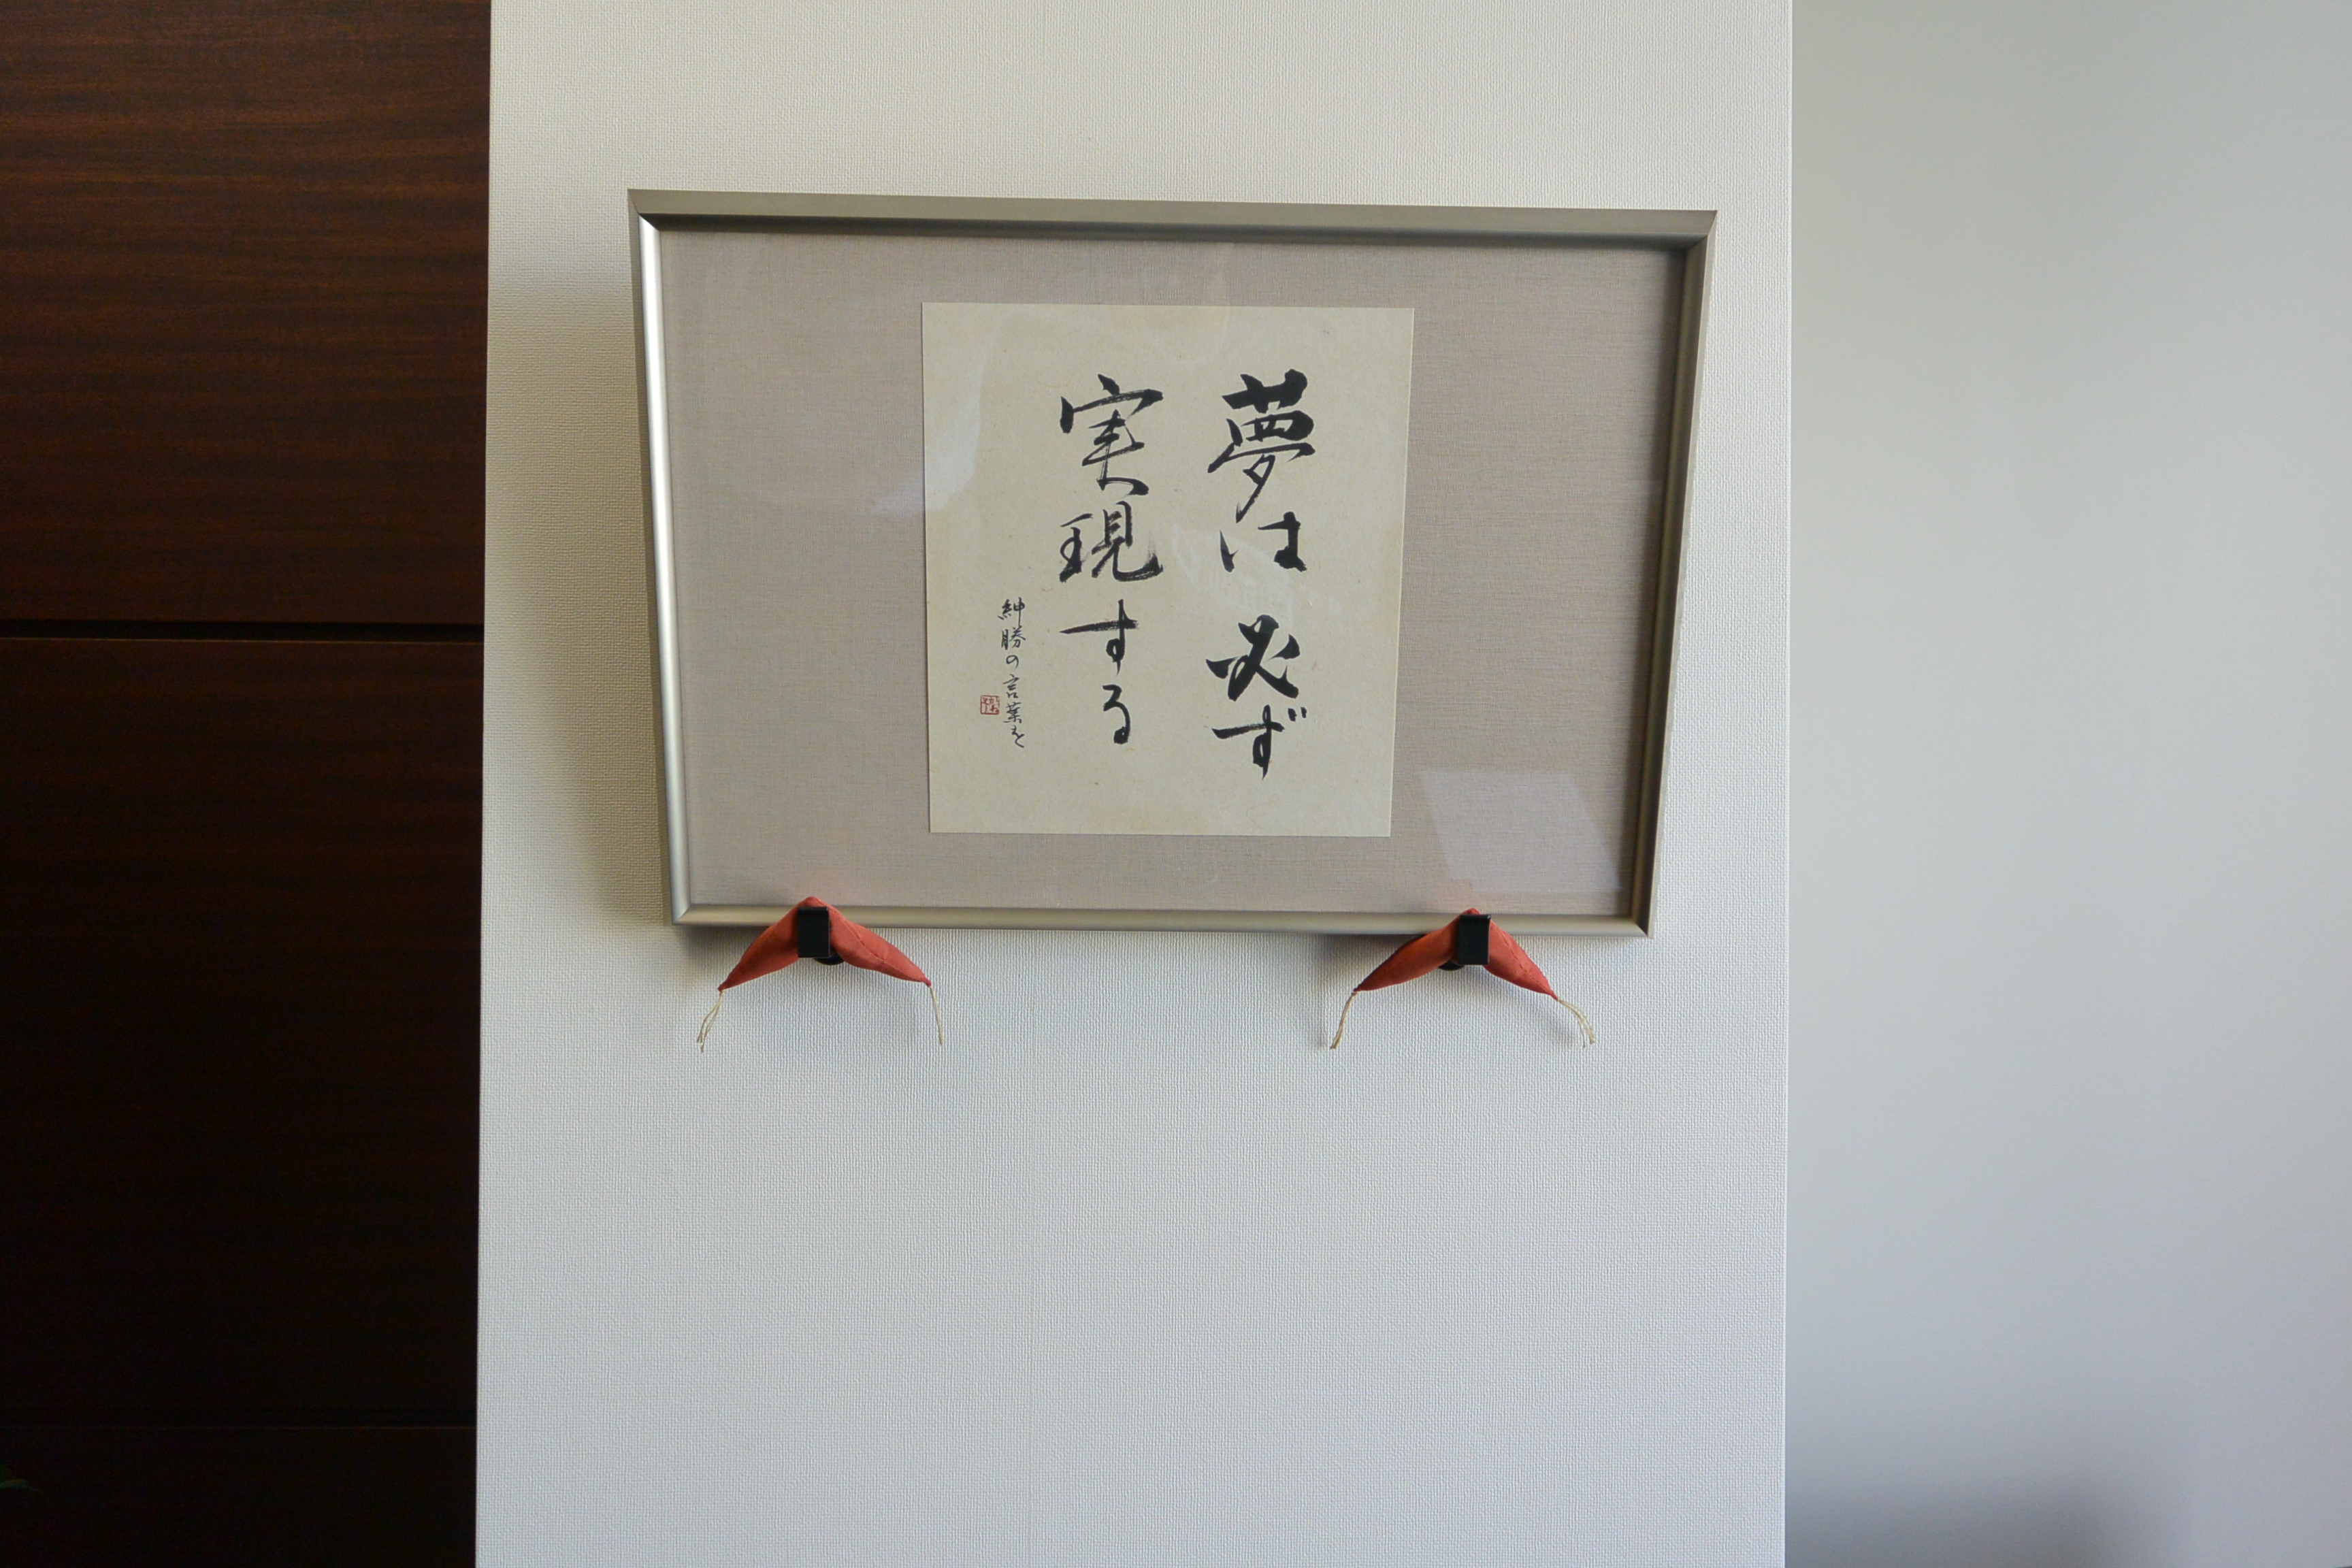 夢は必ず
実現する
紳勝の言葉を